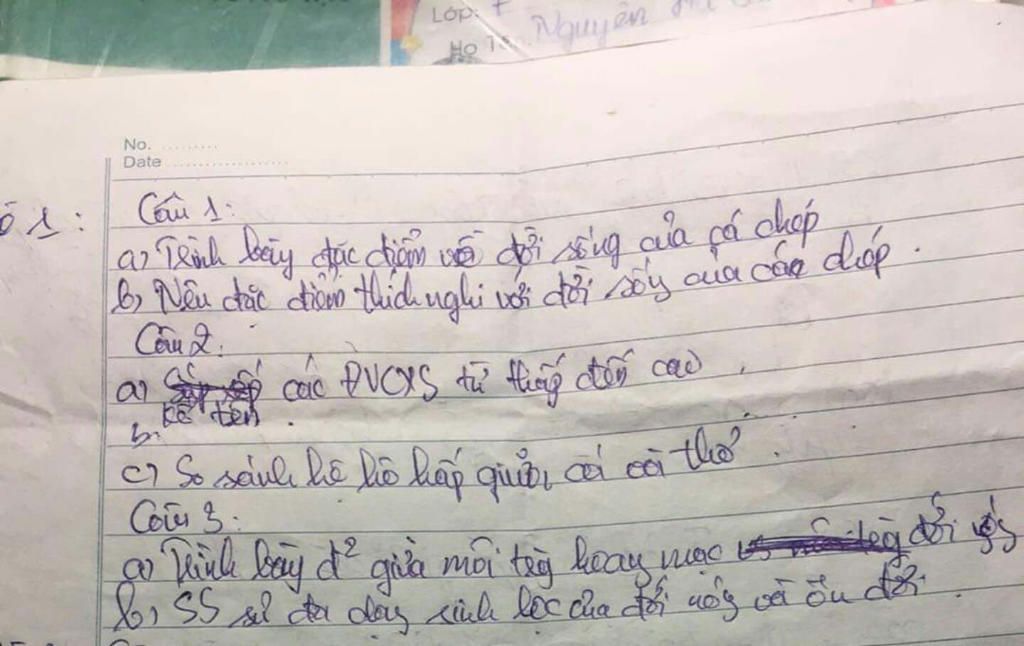 Lớp: 7
Họ Tên Nguyễn
No.
Date
1: Câu 1:
a) Trình bày đặc điểm về đời sống của cá chép
b, Nêu đặc điểm thích nghi với đời sống của các chép.
Câu 2:
a) các ĐVCXS từ thấp đến cao.
kể tên.
b.
c) So sánh hệ hô hấp giữa cá và thỏ.
Câu 3:
a) Trình bày đ² giữa môi trg hoang mạc đới nóng
b, SS sự đa dạng sinh học của đới nóng và ôn đới.